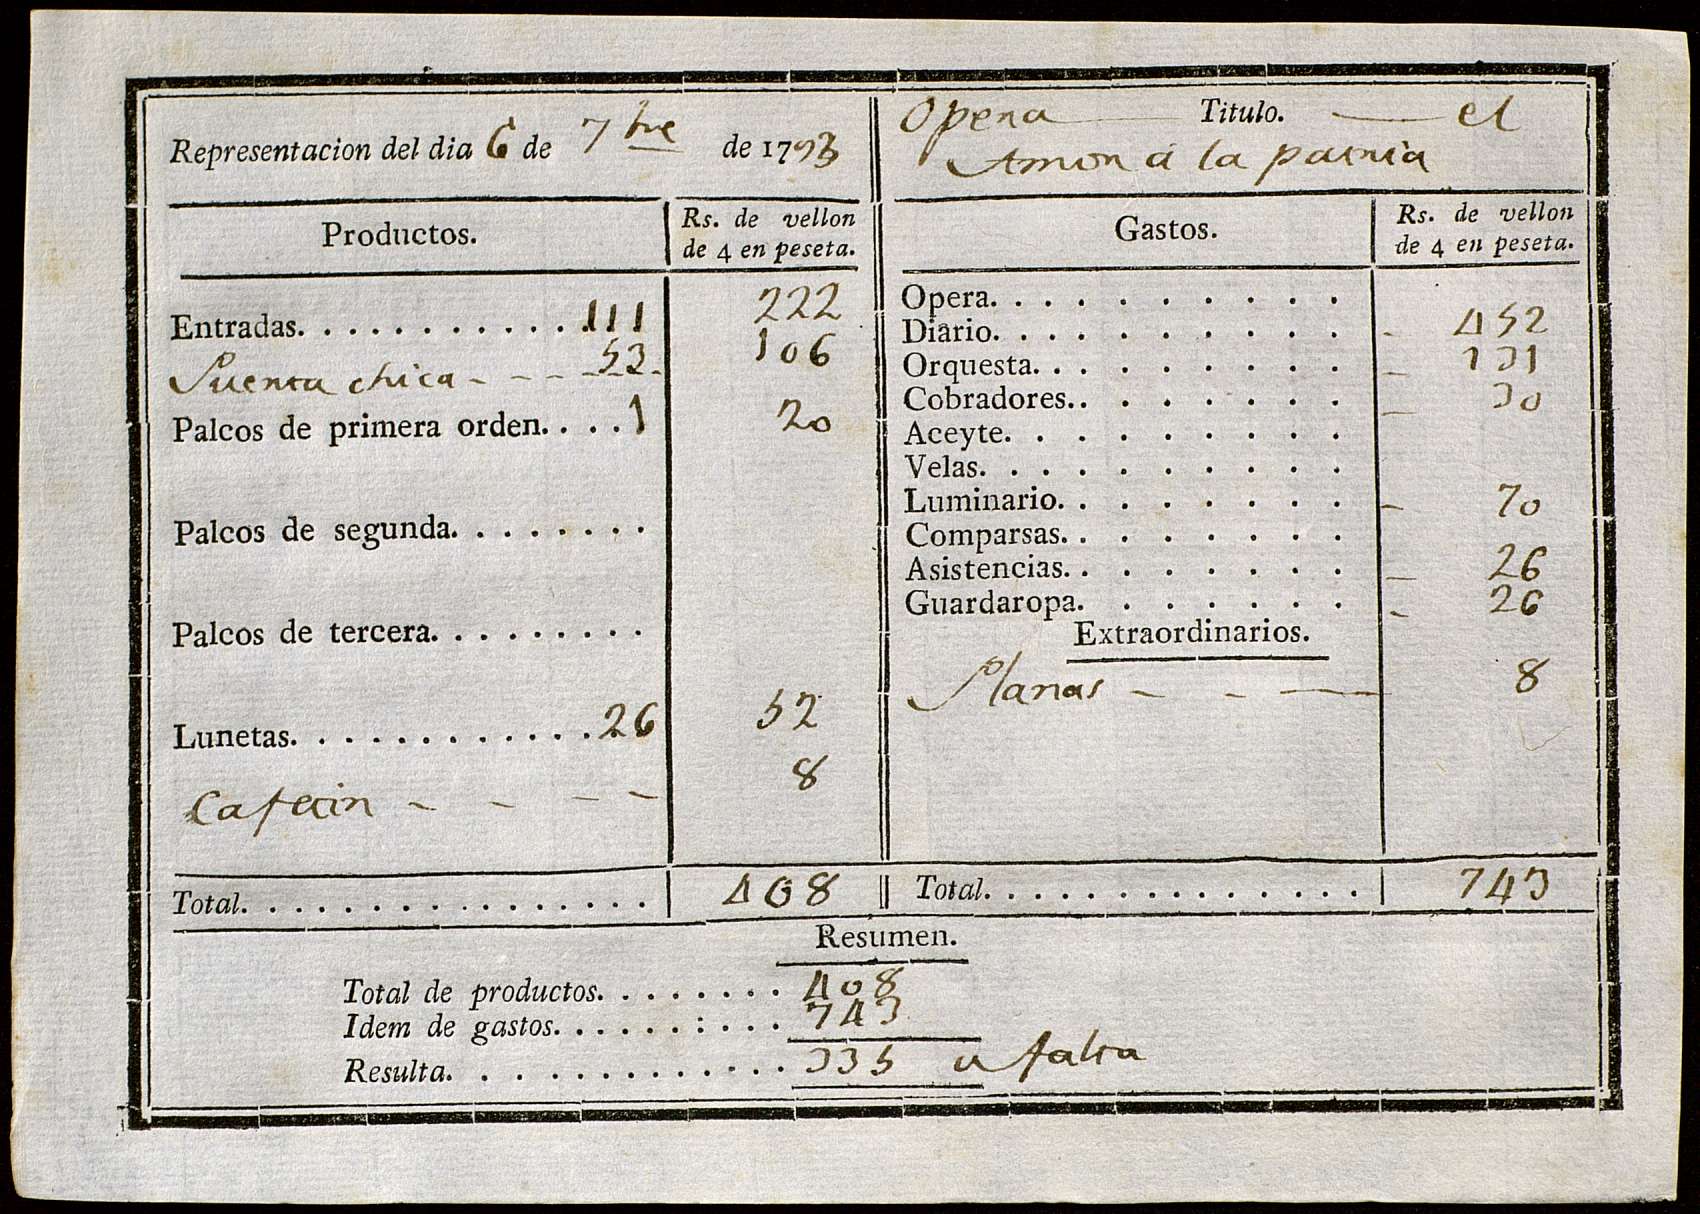 Representacion del dia 6 de 7bre de 1793
Opera Titulo. el
Amor á la patria
Productos. Rs. de vellon de 4 en peseta.
Entradas. . . . . . . . . . . 111 222
Puerta chica - - - - - 53 106
Palcos de primera orden. . . . 1 20
Palcos de segunda. . . . . . . .
Palcos de tercera. . . . . . . . .
Lunetas. . . . . . . . . . . . 26 52
Cafetin - - - - 8
Total. . . . . . . . . . . . . . . . 408
Gastos. Rs. de vellon de 4 en peseta.
Opera. . . . . . . . . .
Diario. . . . . . . . . . - 452
Orquesta. . . . . . . . . - 131
Cobradores. . . . . . . . - 30
Aceyte. . . . . . . . . .
Velas. . . . . . . . . .
Luminario. . . . . . . . - 70
Comparsas. . . . . . . .
Asistencias. . . . . . . . - 26
Guardaropa. . . . . . . - 26
Extraordinarios.
Planas - - - 8
Total. . . . . . . . . . . . . . . 743
Resumen.
Total de productos. . . . . . . . 408
Idem de gastos. . . . . . : . . . 743
Resulta. . . . . . . . . . . . . 335 a falta